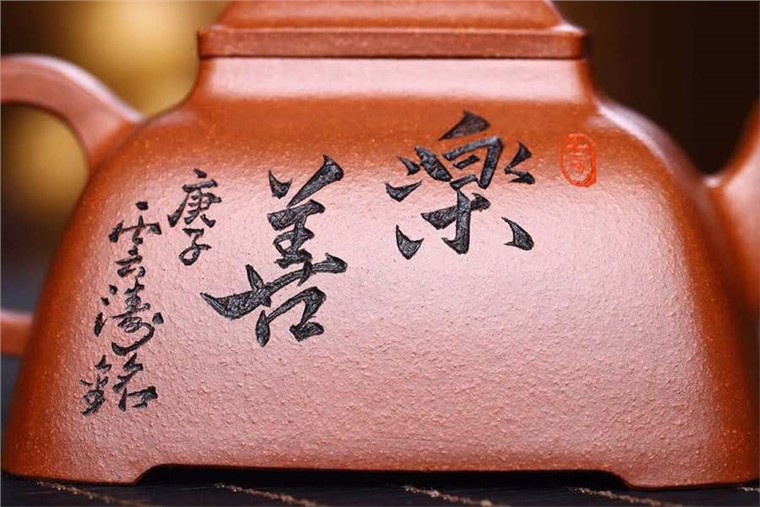 楽善
庚子
雲濤銘